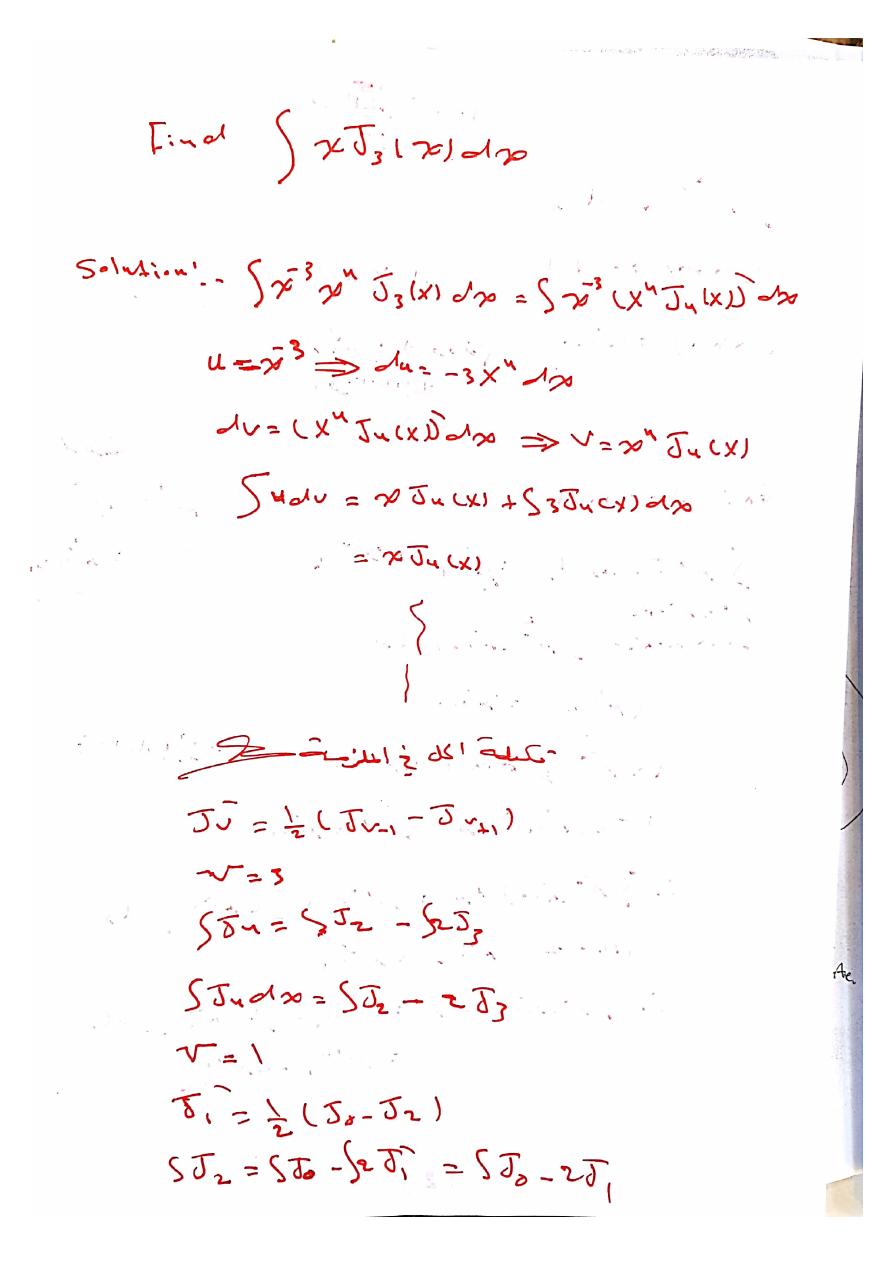 Find ∫ x J₃(x) dx
Solution:- ∫ x⁻³ x⁴ J₃(x) dx = ∫ x⁻³ (x⁴ J₄(x))' dx
u = x⁻³ ⇒ du = -3 x⁴ dx
dv = (x⁴ J₄(x))' dx ⇒ v = x⁴ J₄(x)
∫ u dv = x J₄(x) + ∫ 3 J₄(x) dx
= x J₄(x)
تكملة الحل في الملزمة
Jᵥ' = ½ ( Jᵥ₋₁ - Jᵥ₊₁ )
v = 3
∫ J₄ = ∫ J₂ - ∫ 2 J₃
∫ J₄ dx = ∫ J₂ - 2 J₃
v = 1
J₁' = ½ ( J₀ - J₂ )
∫ J₂ = ∫ J₀ - ∫ 2 J₁' = ∫ J₀ - 2 J₁